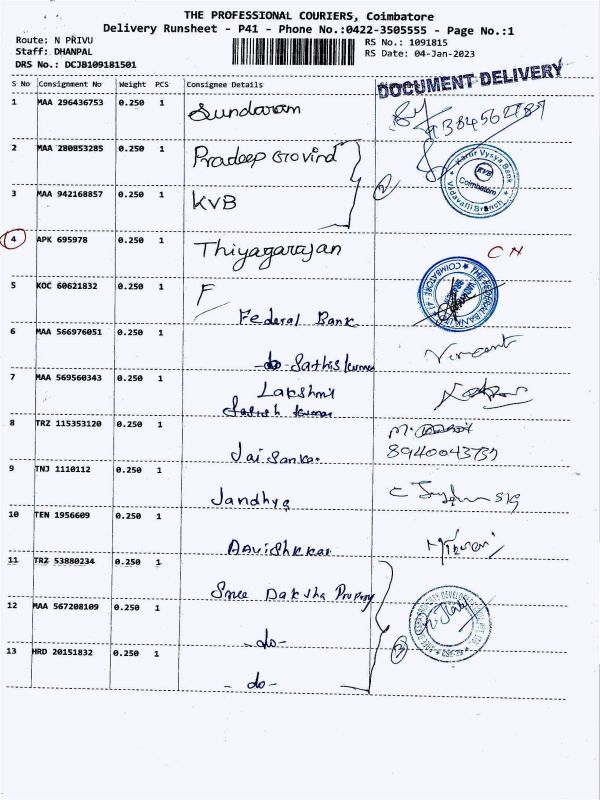 THE PROFESSIONAL COURIERS, Coimbatore
Delivery Runsheet - P41 - Phone No.:0422-3505555 - Page No.:1
Route: N PRIVU
RS No.: 1091815
Staff: DHANPAL
RS Date: 04-Jan-2023
DRS No.: DCJB109181501
S No Consignment No Weight PCS Consignee Details
DOCUMENT DELIVERY
1 MAA 296436753 0.250 1 Sundaram
2 MAA 280853285 0.250 1 Pradeep Govind
Karur Vysya Bank
KVB
Coimbatore
Branch
3 MAA 942168857 0.250 1 KVB
2
4 APK 695978 0.250 1 Thiyagarajan CN
5 KOC 60621832 0.250 1 F
Federal Bank
THE FEDERAL BANK COIMBATORE
6 MAA 566976051 0.250 1
do Sathis kumar Vincent
7 MAA 569560343 0.250 1 Lakshmi
Satish kumar
8 TRZ 115353120 0.250 1
Jai Sankar 8940043737
9 TNJ 1110112 0.250 1
Jandhya
10 TEN 1956609 0.250 1
11 TRZ 53880234 0.250 1
Sree Daksha Property
12 MAA 567208109 0.250 1
- do -
3
13 HRD 20151832 0.250 1
- do -